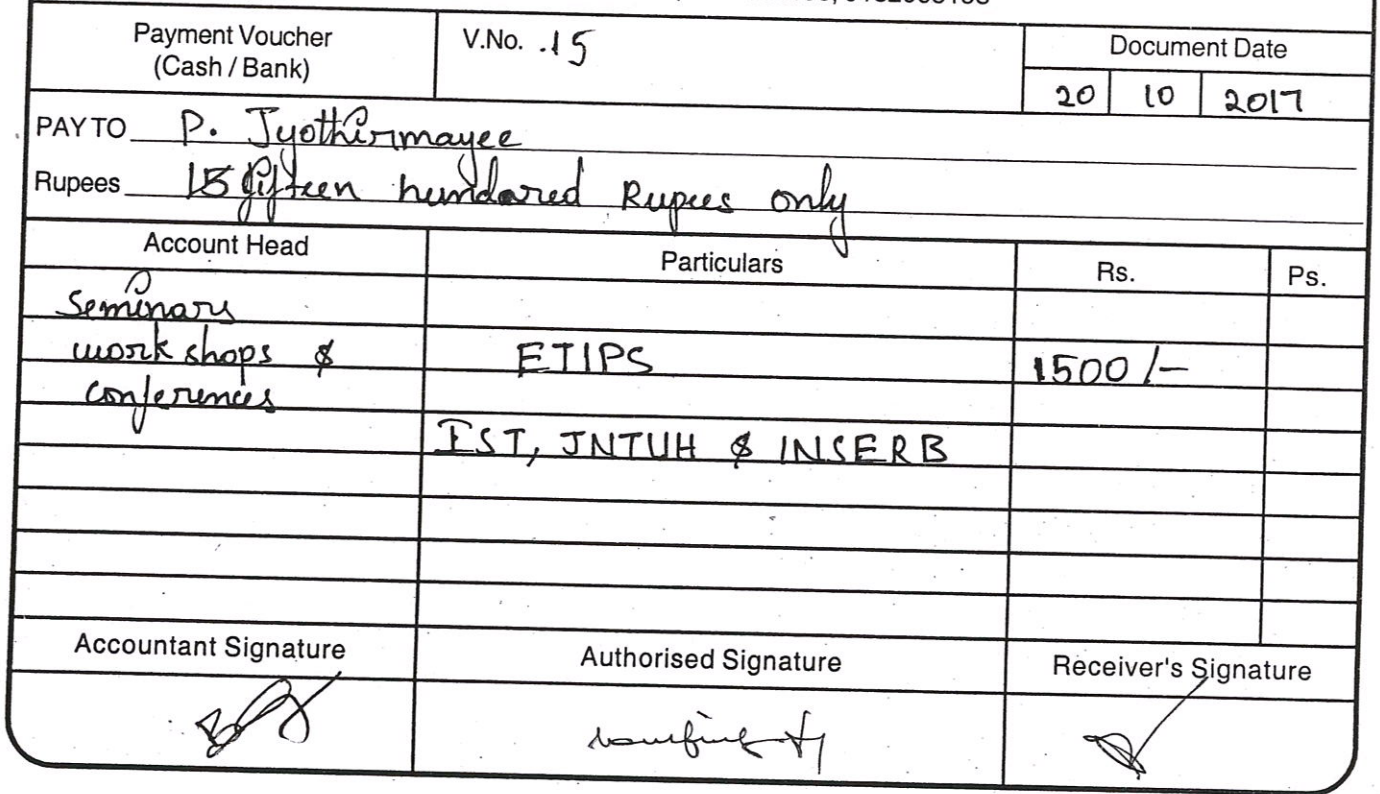 Payment Voucher
(Cash / Bank)
V.No. .15
Document Date
20 10 2017
PAY TO P. Jyothirmayee
Rupees 15 fifteen hundared Rupees only
Account Head Particulars Rs. Ps.
Seminars
work shops &
conferences
ETIPS 1500/-
IST, JNTUH & INSERB
Accountant Signature Authorised Signature Receiver's Signature